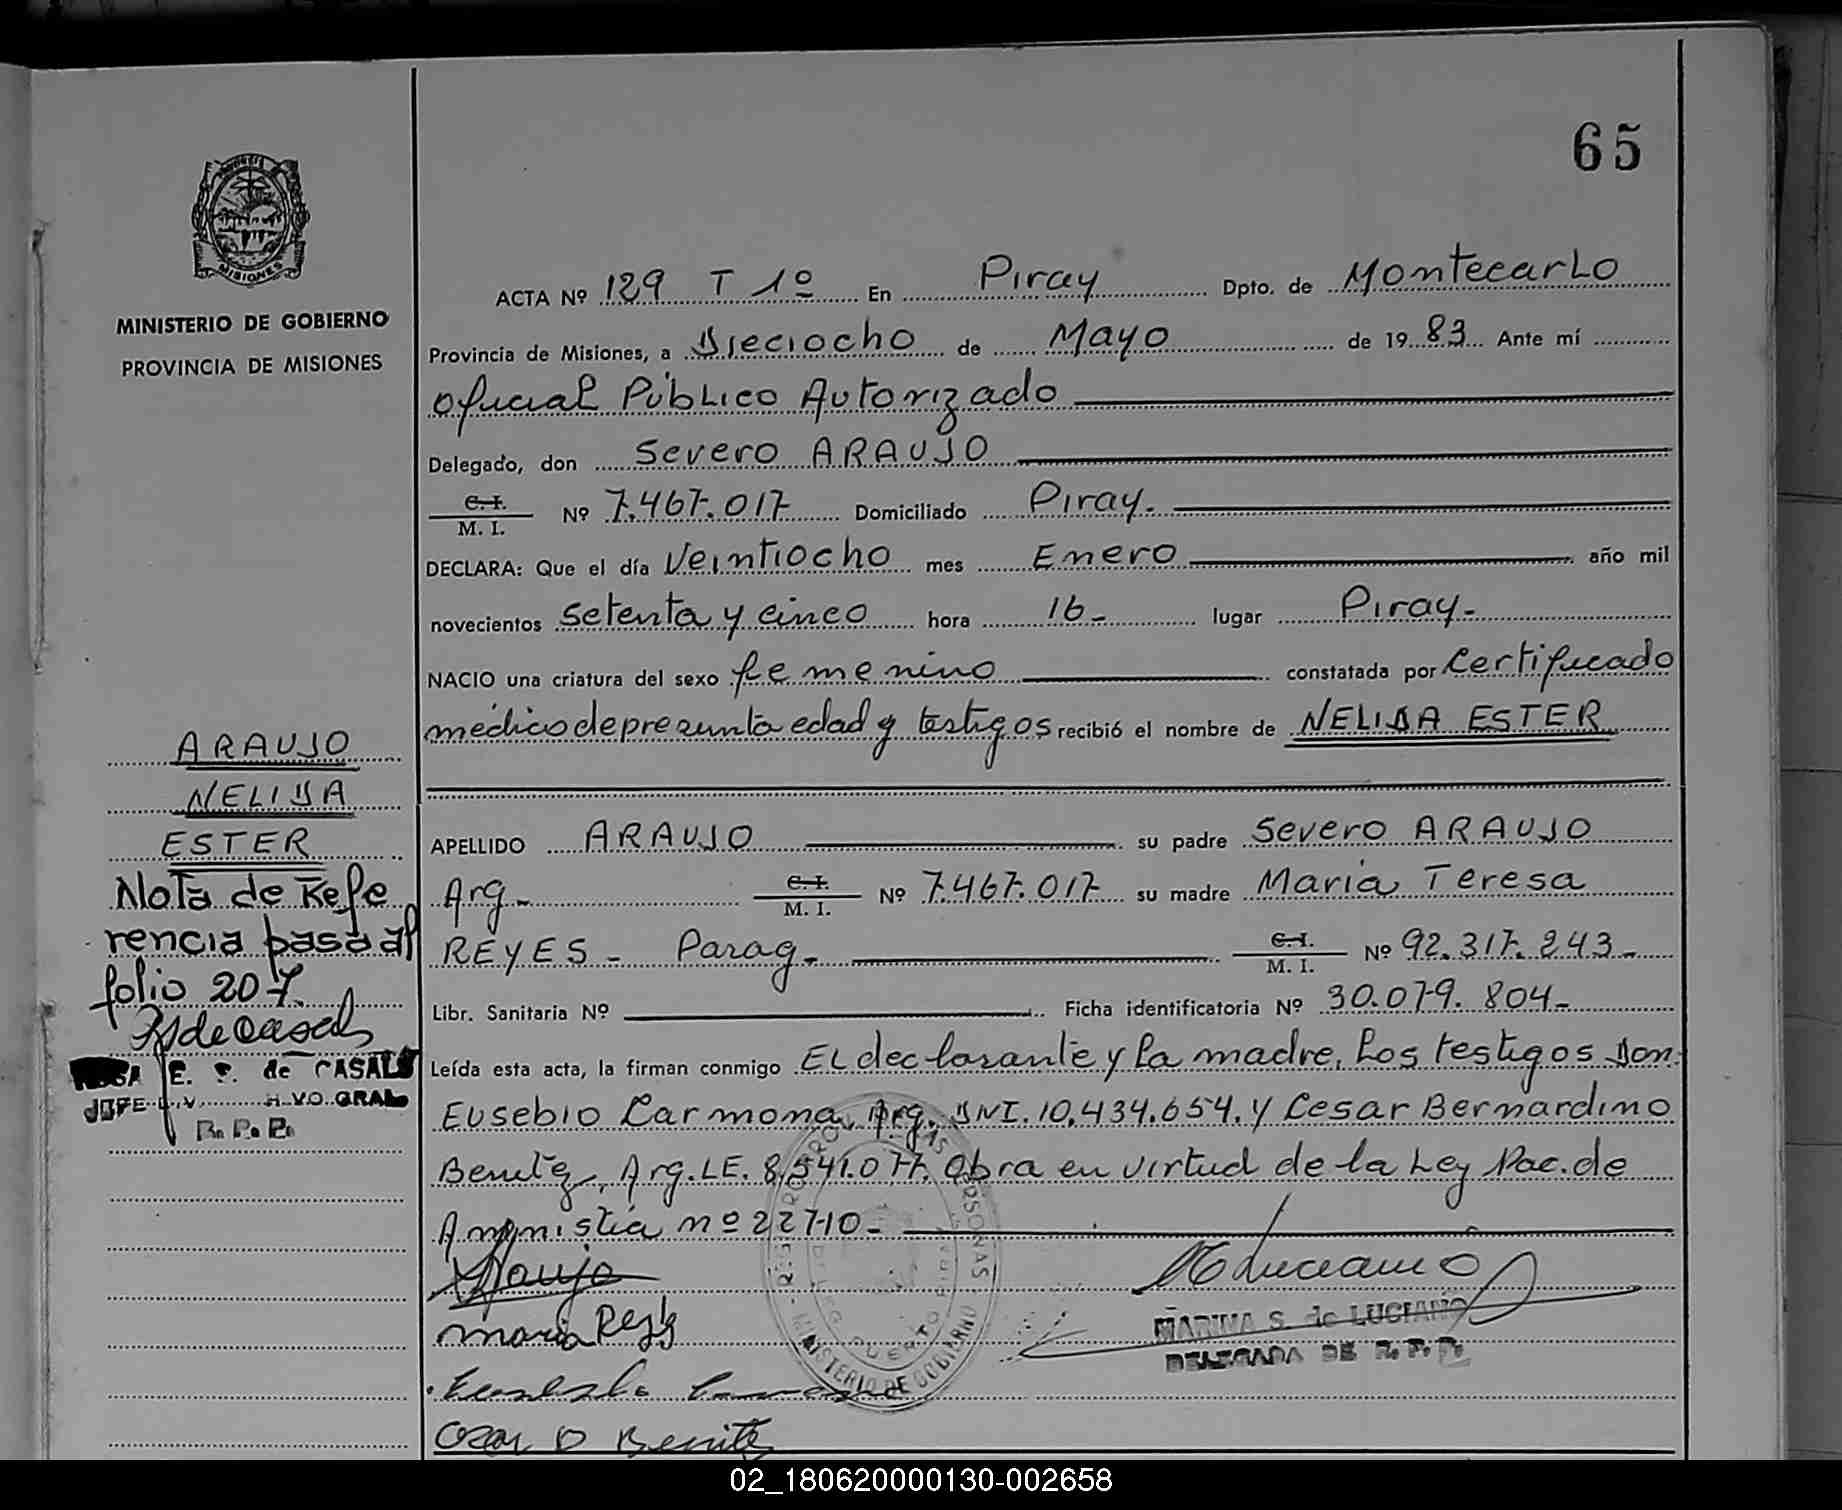 65
MISIONES
MINISTERIO DE GOBIERNO
PROVINCIA DE MISIONES
ARAUJO
NELIDA
ESTER
Nota de Refe
rencia pasa al
folio 207.
E. S. de CASALS
JEFE DIV. GRAL
R. P. P.
ACTA Nº 129 T 1º En Piray Dpto. de Montecarlo
Provincia de Misiones, a Dieciocho de Mayo de 1983 Ante mí
Oficial Público Autorizado
Delegado, don Severo ARAUJO
C. I.
M. I. Nº 7.467.017 Domiciliado Piray.
DECLARA: Que el día Veintiocho mes Enero año mil
novecientos Setenta y cinco hora 16- lugar Piray-
NACIO una criatura del sexo femenino constatada por Certificado
médico de presunta edad y testigos recibió el nombre de NELIDA ESTER
APELLIDO ARAUJO su padre Severo ARAUJO
Arg- C. I.
M. I. Nº 7.467.017 su madre María Teresa
REYES - Parag- C. I.
M. I. Nº 92.317.243-
Libr. Sanitaria Nº Ficha identificatoria Nº 30.079.804-
Leída esta acta, la firman conmigo El declarante y la madre, los testigos Don
Eusebio Carmona, Arg. DNI. 10,434.654. y Cesar Bernardino
Benitez, Arg. LE. 8,541.077. Obra en virtud de la Ley Nac. de
Amnistía nº 22710-
Araujo
Maria Reyes
MARINA S. de LUCIANO
DELEGADA DE R. P. P.
MINISTERIO DE GOBIERNO
Cesar B Benitez
02_180620000130-002658